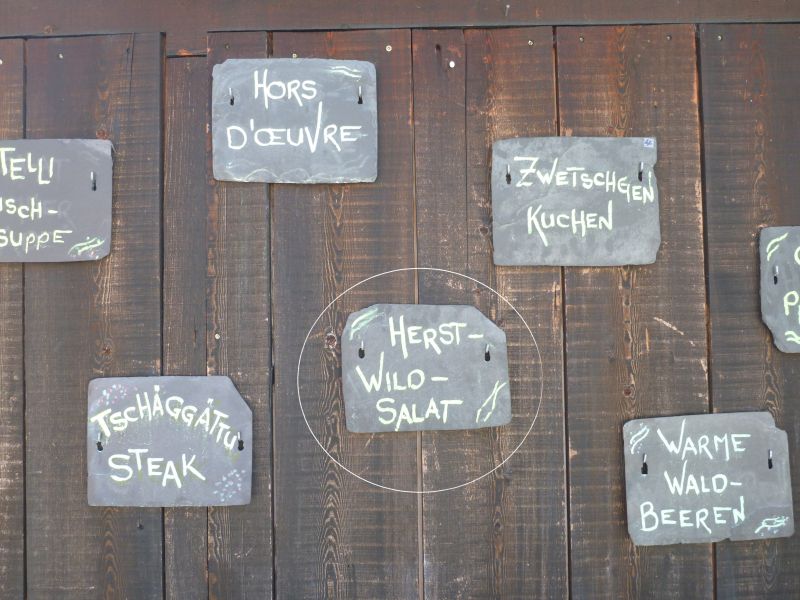 HORS
D'ŒUVRE
TELLI
SCH-
SUPPE
ZWETSCHGEN
KUCHEN
HERST-
WILD-
SALAT
TSCHÄGGÄTTU
STEAK
WARME
WALD-
BEEREN